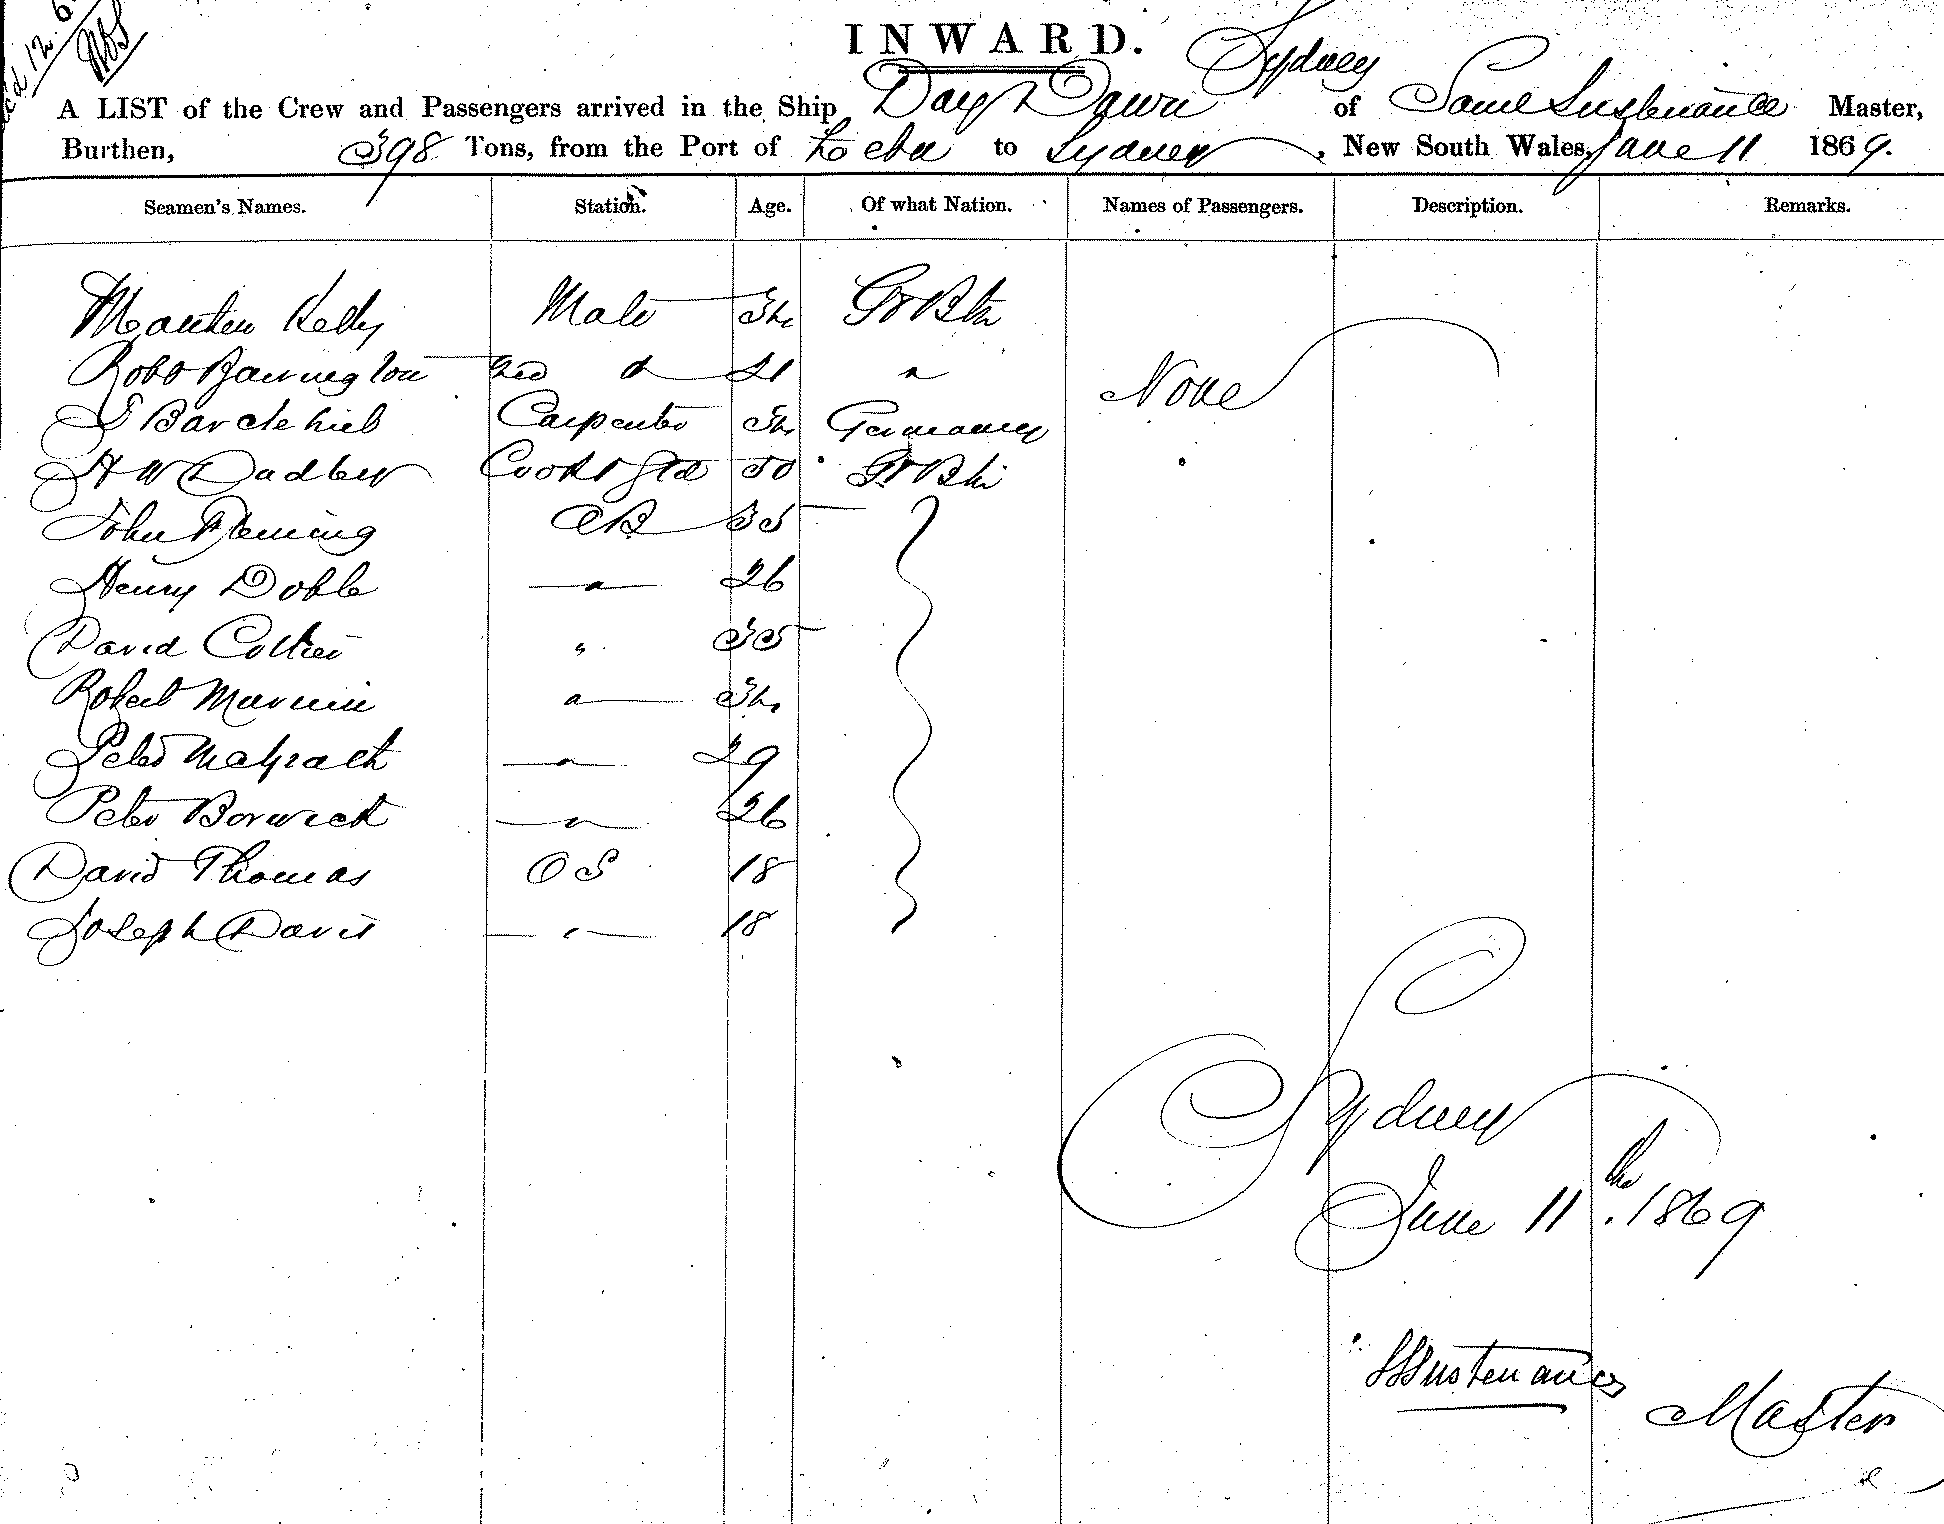 INWARD.
A LIST of the Crew and Passengers arrived in the Ship Day Dawn of Sydney Saml Sustenance Master,
Burthen, 398 Tons, from the Port of to Sydney, New South Wales, June 11 1869.
Seamen's Names. Station. Age. Of what Nation. Names of Passengers. Description. Remarks.
Kelly Mate Gt Btn
Robt 21 "
Carpenter Germany None
H W Cook & Std 50 Gt Btn
John Fleming AB 35
Henry Doble " 26
David Collier " 35
Robert "
Peter McGrath " 29
Peter Borwick " 26
David Thomas OS 18
Joseph Davis " 18
Sydney
June 11th. 1869
SSustenance
Master